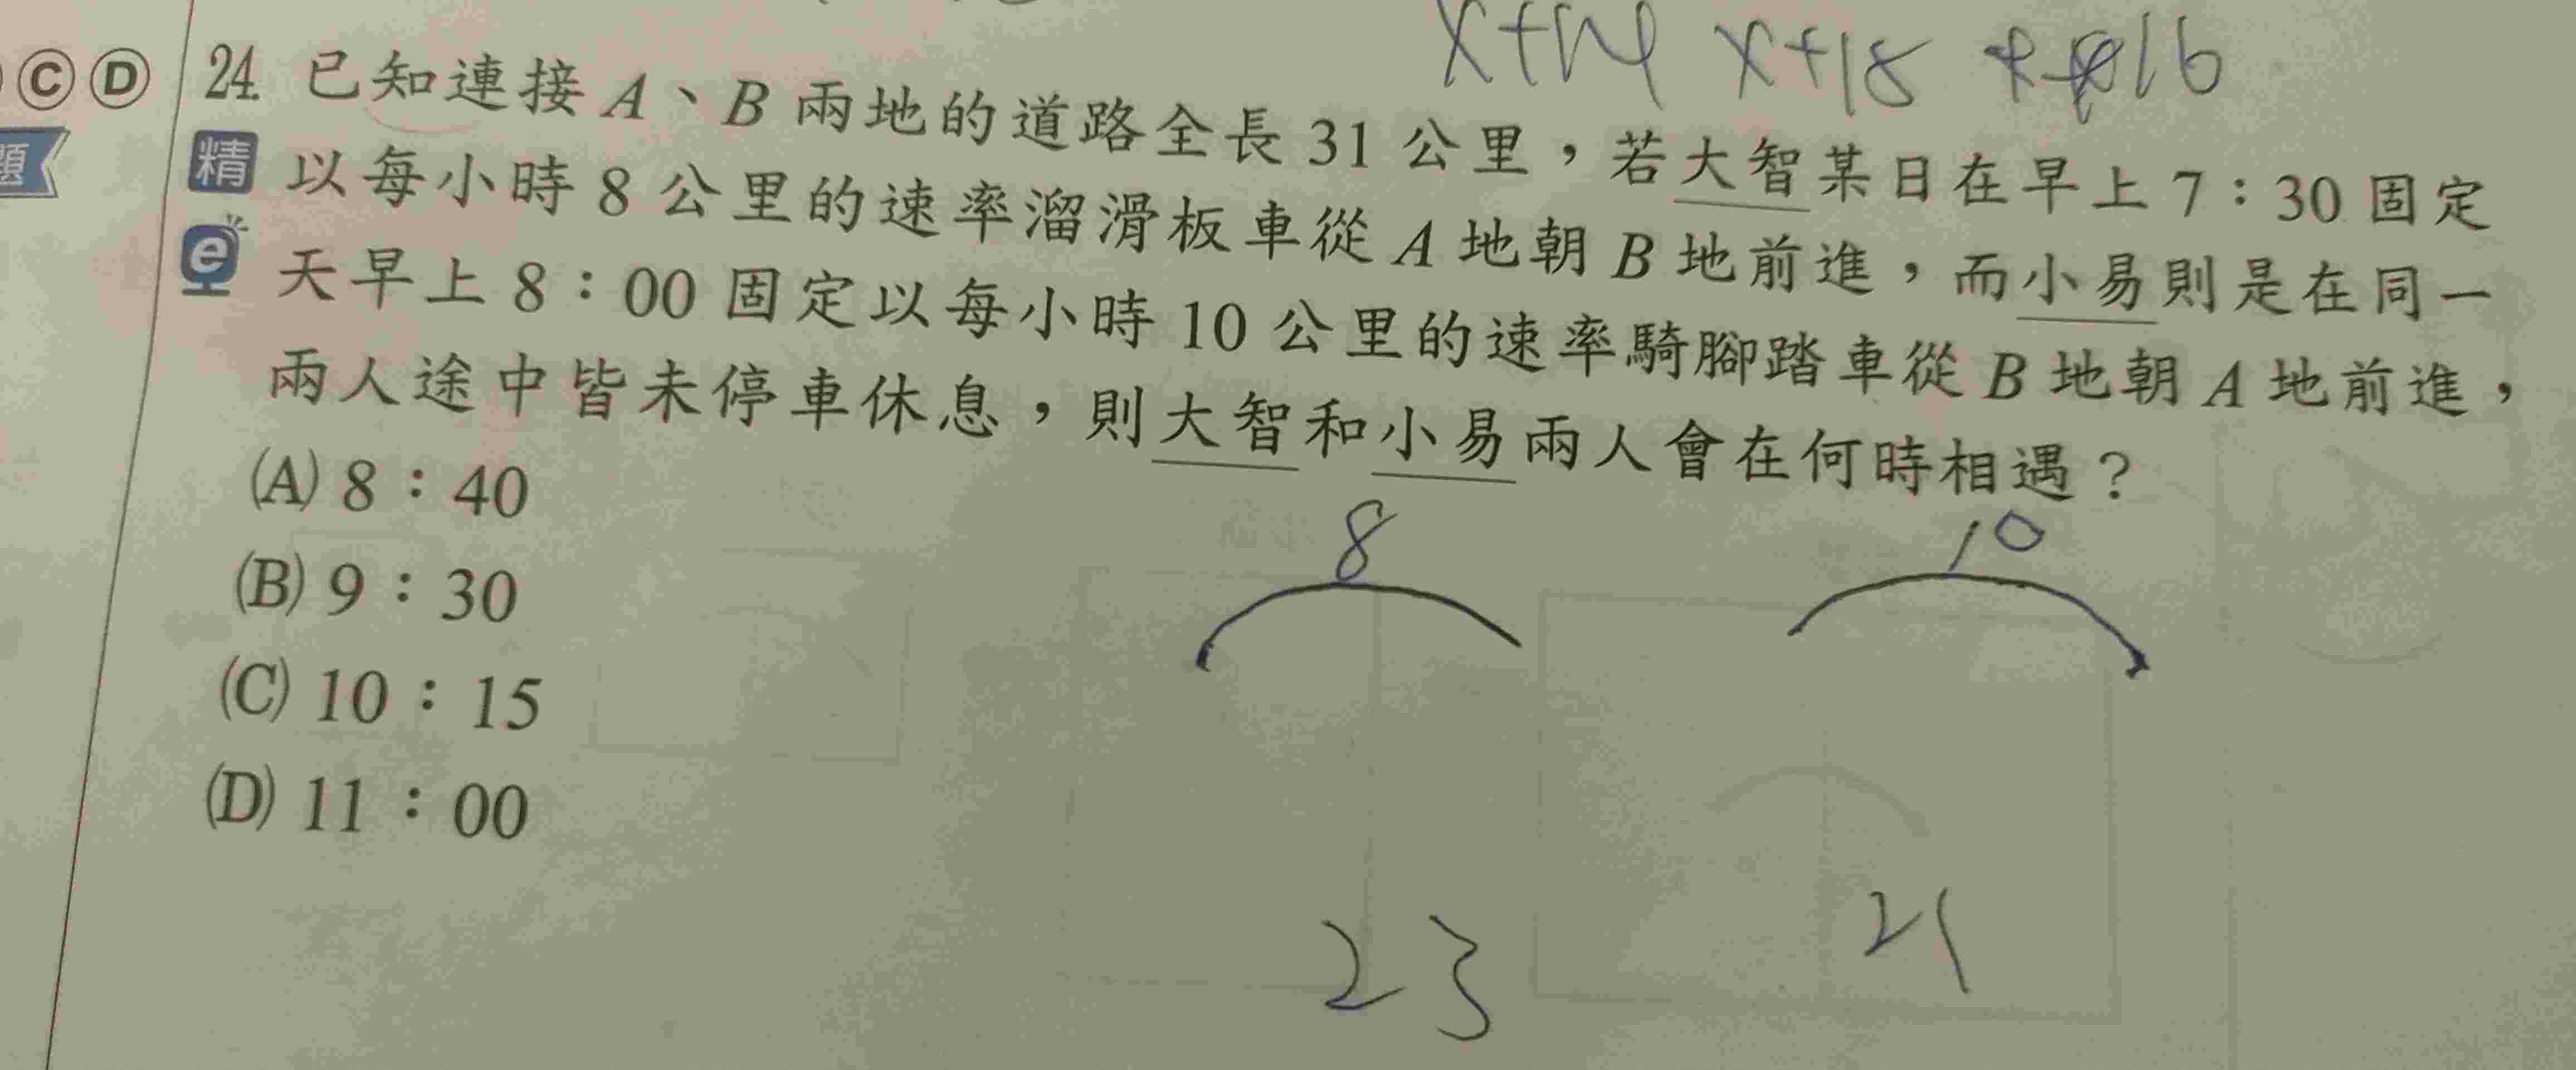 x+14 x+18 16
Ⓒ Ⓓ 24. 已知連接 A、B 兩地的道路全長 31 公里，若大智某日在早上 7：30 固定
題 精 以每小時 8 公里的速率溜滑板車從 A 地朝 B 地前進，而小易則是在同一
e 天早上 8：00 固定以每小時 10 公里的速率騎腳踏車從 B 地朝 A 地前進，
兩人途中皆未停車休息，則大智和小易兩人會在何時相遇？
(A) 8：40
8 10
(B) 9：30
(C) 10：15
(D) 11：00
23 21